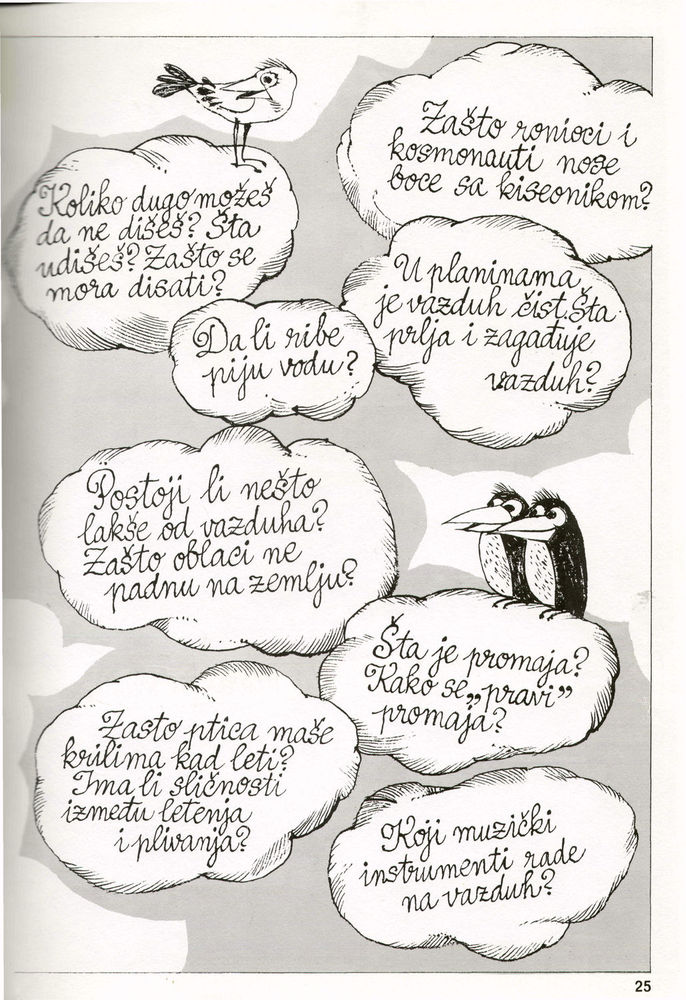 Koliko dugo možeš
da ne dišeš? Šta
udišeš? Zašto se
mora disati?
Zašto ronioci i
kosmonauti nose
boce sa kiseonikom?
U planinama
je vazduh čist. Šta
prlja i zagađuje
vazduh?
Da li ribe
piju vodu?
Postoji li nešto
lakše od vazduha?
Zašto oblaci ne
padnu na zemlju?
Šta je promaja?
Kako se „pravi”
promaja?
Zasto ptica maše
krilima kad leti?
Ima li sličnosti
između letenja
i plivanja?
Koji muzički
instrumenti rade
na vazduh?
25